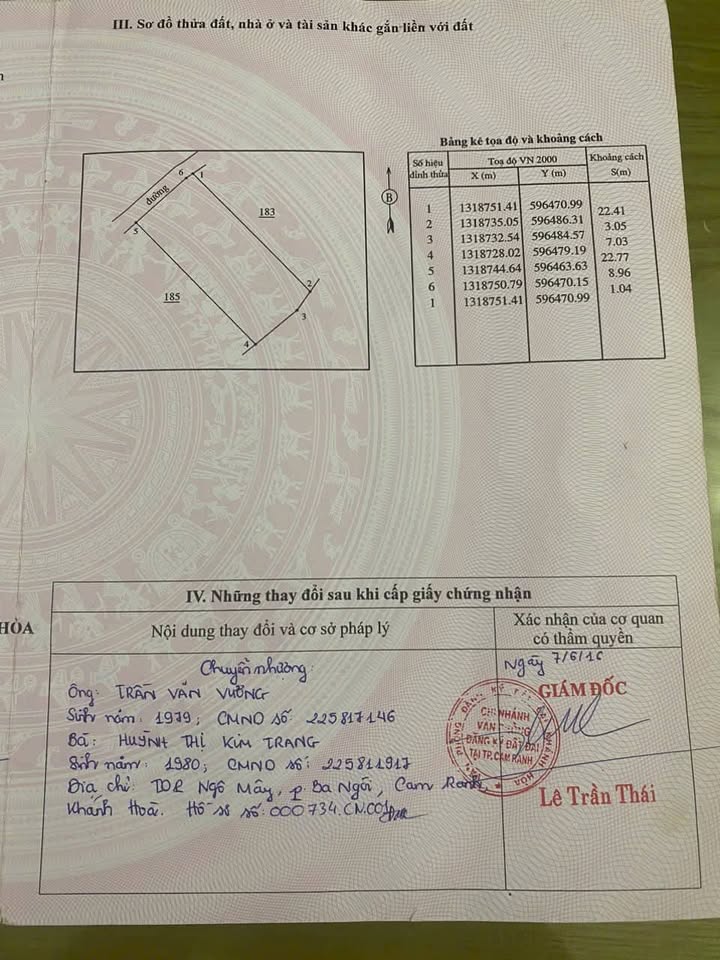 III. Sơ đồ thửa đất, nhà ở và tài sản khác gắn liền với đất
Bảng kê tọa độ và khoảng cách
Số hiệu đỉnh thửa Toạ độ VN 2000 Khoảng cách
X (m) Y (m) S(m)
1 1318751.41 596470.99
22.41
2 1318735.05 596486.31
3.05
3 1318732.54 596484.57
7.03
4 1318728.02 596479.19
22.77
5 1318744.64 596463.63
8.96
6 1318750.79 596470.15
1.04
1 1318751.41 596470.99
B
đường
6
1
183
5
185
2
3
4
HÒA
IV. Những thay đổi sau khi cấp giấy chứng nhận
Nội dung thay đổi và cơ sở pháp lý
Xác nhận của cơ quan
có thẩm quyền
Chuyển nhượng:
Ông: TRẦN VĂN VƯỜNG
Sinh năm: 1979; CMND số: 225817146
Bà: HUỲNH THỊ KIM TRANG
Sinh năm: 1980; CMND số: 225811917
Địa chỉ: TDP Ngô Mây, p. Ba Ngòi, Cam Ranh,
Khánh Hoà. Hồ sơ số: 000734.CN.001
Ngày 7/6/16
GIÁM ĐỐC
CHI NHÁNH
VĂN PHÒNG
ĐĂNG KÝ ĐẤT ĐAI
TẠI TP.CAM RANH
Lê Trần Thái